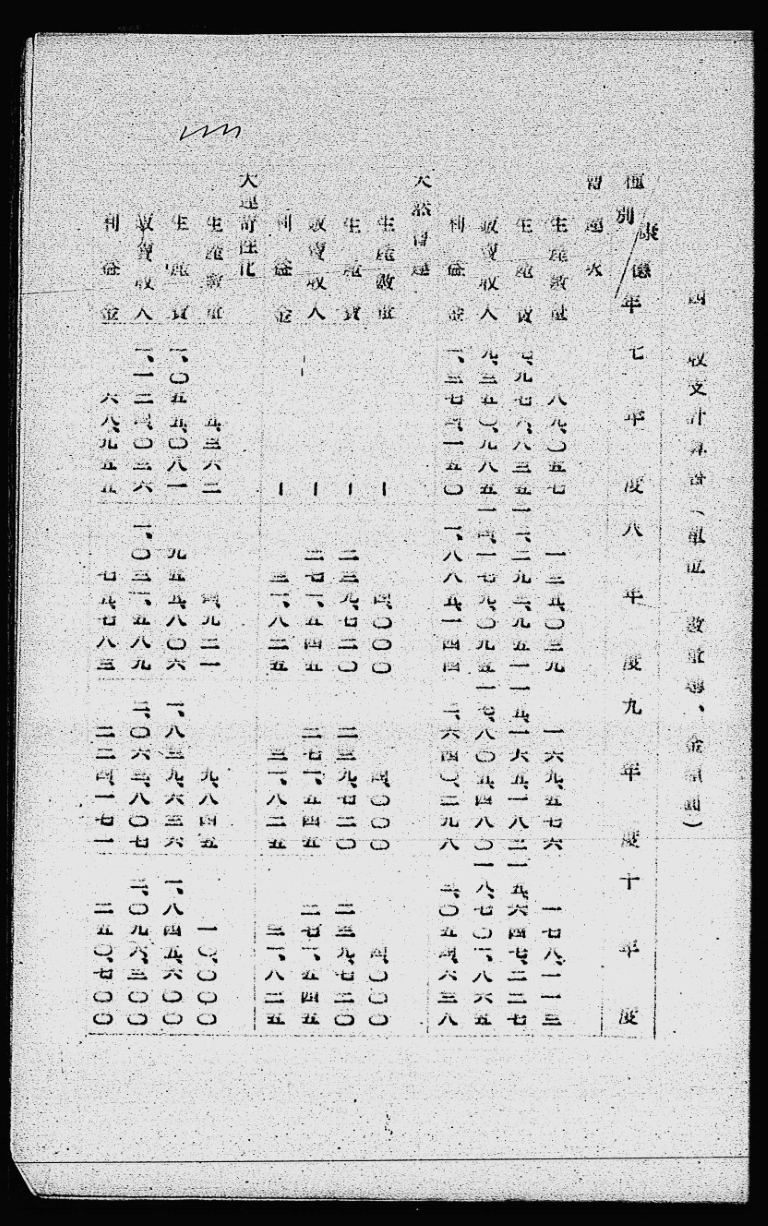 四 收支計算書（單位 數量噸、金額圓）
種別 康德年 七年度 八年度 九年度 十年度
曹達灰
生産數量 八九、〇五七 一三五、〇三九 一六九、五七六 一七八、一一三
生産費 七、九七六、八三五 一二、二九三、九五一 一五、一六五、一八二 一五、六四七、二二七
販賣收入 九、三五〇、九八五 一四、一七九、〇九五 一七、八〇五、四八〇 一八、七〇一、八六五
利益金 一、三七四、一五〇 一、八八五、一四四 二、六四〇、二九八 三、〇五四、六三八
天然曹達
生産數量 ー 四、〇〇〇 四、〇〇〇 四、〇〇〇
生産費 ー 二三九、七二〇 二三九、七二〇 二三九、七二〇
販賣收入 ー 二七一、五四五 二七一、五四五 二七一、五四五
利益金 ー 三一、八二五 三一、八二五 三一、八二五
大連苛性化
生産數量 五、三六二 四、九二一 九、八四五 一〇、〇〇〇
生産費 一、〇五五、〇八一 九五五、八〇六 一、八三九、六三六 一、八四五、六〇〇
販賣收入 一、一二四、〇三六 一、〇三一、五八九 二、〇六三、八〇七 二、〇九六、三〇〇
利益金 六八、九五五 七五、七八三 二二四、一七一 二五〇、七〇〇